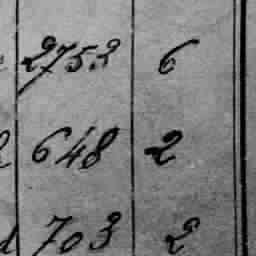 2753 6
648 2
703 2